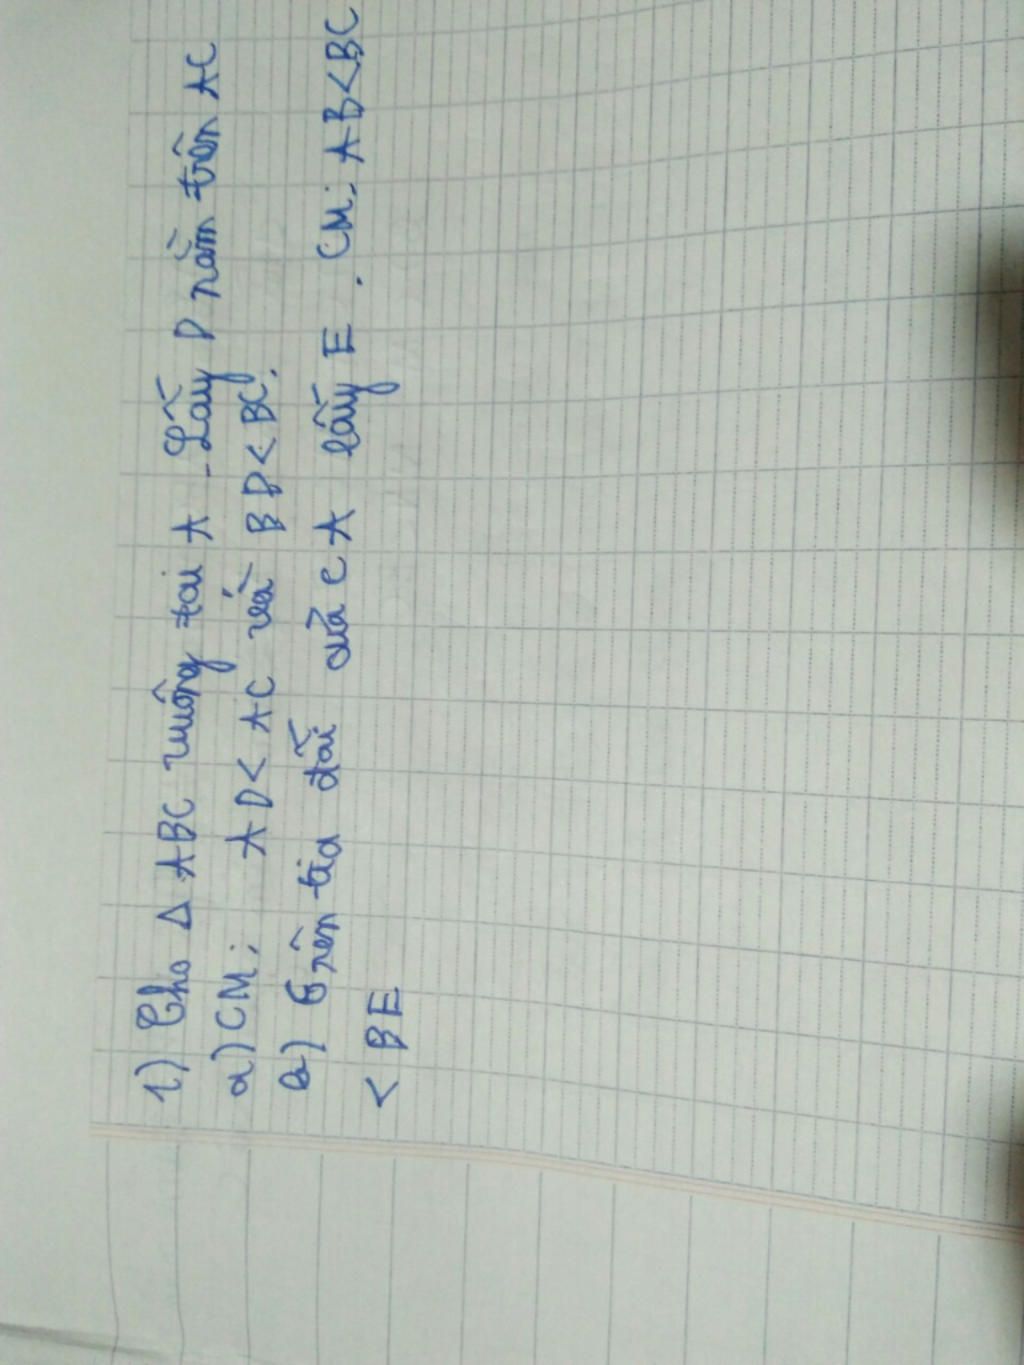 1) Cho Δ ABC vuông tại A. Lấy D nằm trên AC
a) CM: AD < AC và BD < BC.
b) Trên tia đối của CA lấy E. CM: AB < BC
< BE